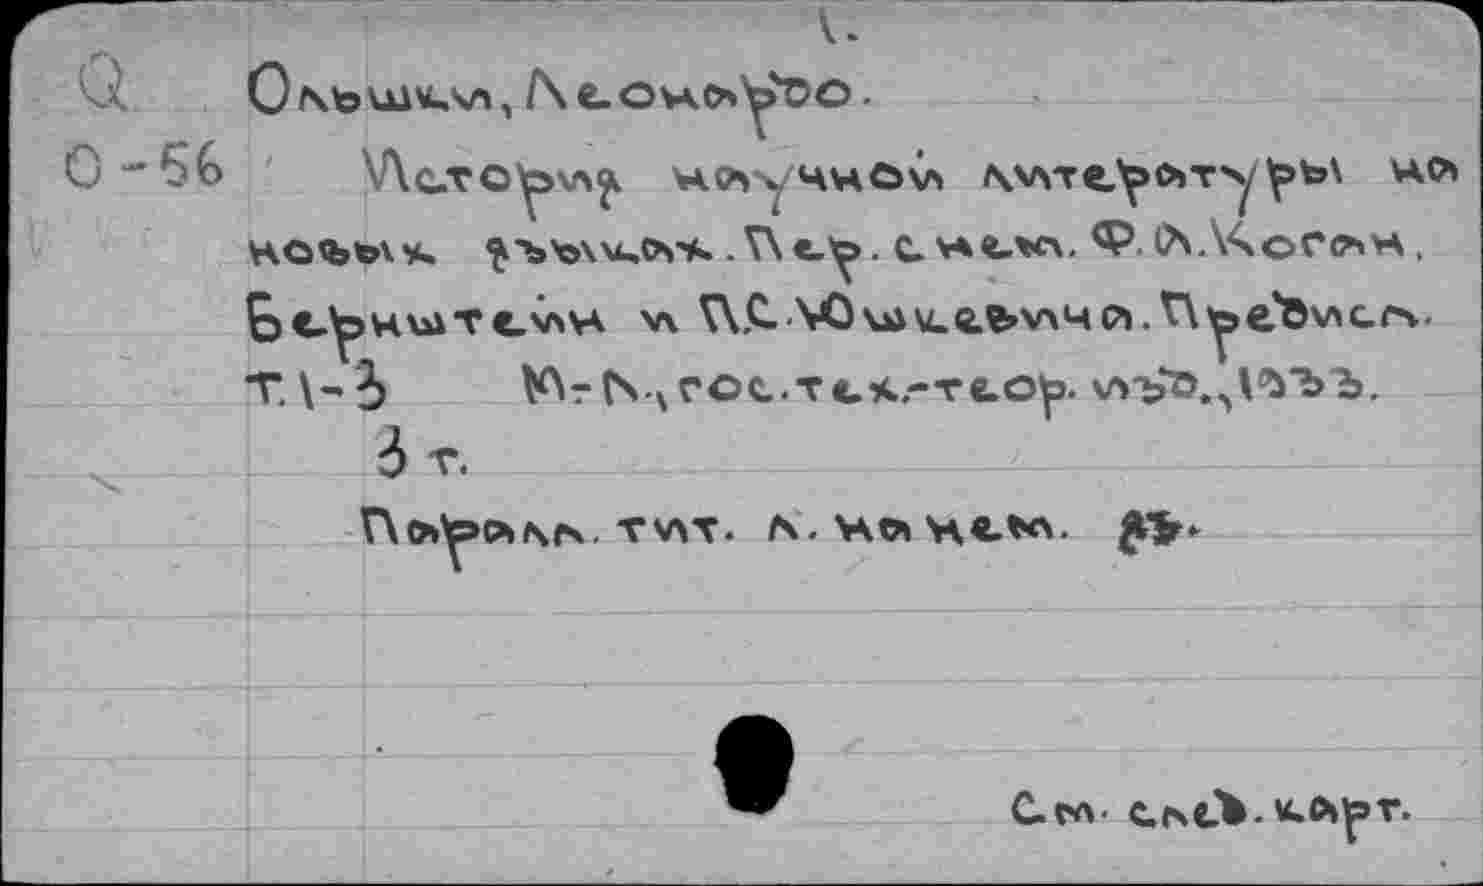 1.
Q Ольшки, Леонардо.
О-56 История научной литературы на
новых языках. Пер. с нем. Ф.А.Коган,
Бернштейн и П.С.Юшкевича. Предисл.
Т.1-3 М-Л., гос.тех.-теор. изд., 1933.
3 т.
Паралл. тит. л. на нем. яз.
См. след. карт.